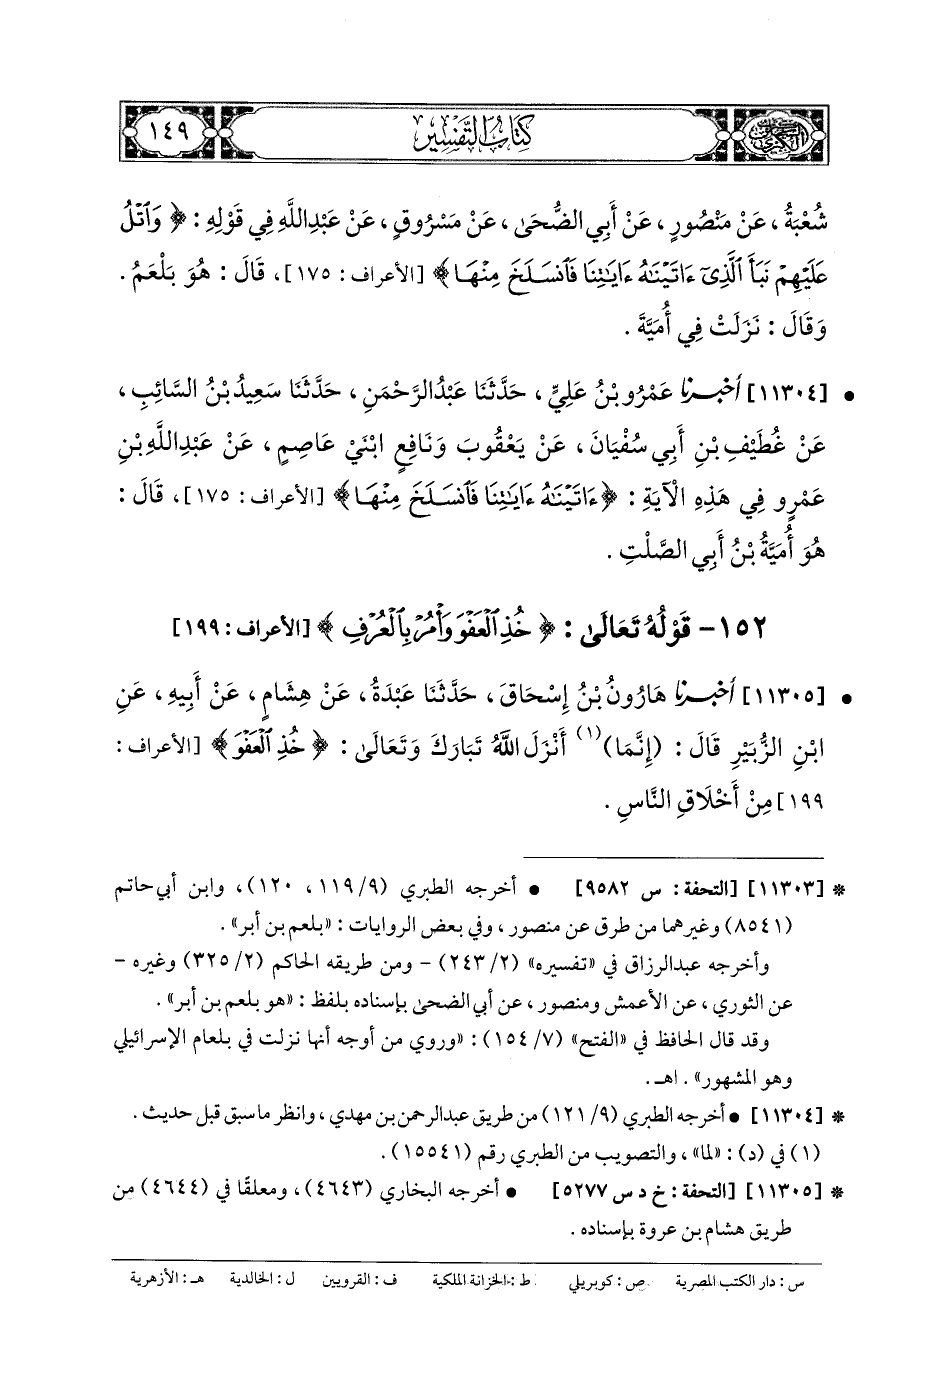 كتاب التفسير
١٤٩
شُعْبَةُ، عَنْ مَنْصُورٍ، عَنْ أَبِي الضُّحَىٰ، عَنْ مَسْرُوقٍ، عَنْ عَبْدِاللَّهِ فِي قَوْلِهِ: ﴿وَٱتْلُ
عَلَيْهِمْ نَبَأَ ٱلَّذِىٓ ءَاتَيْنَـٰهُ ءَايَـٰتِنَا فَٱنسَلَخَ مِنْهَا﴾ [الأعراف: ١٧٥]، قَالَ: هُوَ بَلْعَمُ.
وَقَالَ: نَزَلَتْ فِي أُمَيَّةَ.
• [١١٣٠٤] أخبرنا عَمْرُو بْنُ عَلِيٍّ، حَدَّثَنَا عَبْدُالرَّحْمَنِ، حَدَّثَنَا سَعِيدُ بْنُ السَّائِبِ،
عَنْ غُطَيْفِ بْنِ أَبِي سُفْيَانَ، عَنْ يَعْقُوبَ وَنَافِعٍ ابْنَيْ عَاصِمٍ، عَنْ عَبْدِاللَّهِ بْنِ
عَمْرٍو فِي هَذِهِ الْآيَةِ: ﴿ءَاتَيْنَـٰهُ ءَايَـٰتِنَا فَٱنسَلَخَ مِنْهَا﴾ [الأعراف: ١٧٥]، قَالَ:
هُوَ أُمَيَّةُ بْنُ أَبِي الصَّلْتِ.
١٥٢- قَوْلُهُ تَعَالَىٰ: ﴿خُذِ ٱلْعَفْوَ وَأْمُرْ بِٱلْعُرْفِ﴾ [الأعراف: ١٩٩]
• [١١٣٠٥] أخبرنا هَارُونُ بْنُ إِسْحَاقَ، حَدَّثَنَا عَبْدَةُ، عَنْ هِشَامٍ، عَنْ أَبِيهِ، عَنِ
ابْنِ الزُّبَيْرِ قَالَ: (إِنَّمَا)(١) أَنْزَلَ اللَّهُ تَبَارَكَ وَتَعَالَىٰ: ﴿خُذِ ٱلْعَفْوَ﴾ [الأعراف:
١٩٩] مِنْ أَخْلَاقِ النَّاسِ.
* [١١٣٠٣] [التحفة: س ٩٥٨٢] • أخرجه الطبري (٩/ ١١٩، ١٢٠)، وابن أبي حاتم
(٨٥٤١) وغيرهما من طرق عن منصور، وفي بعض الروايات: «بلعم بن أبر».
وأخرجه عبدالرزاق في «تفسيره» (٢/ ٢٤٣) - ومن طريقه الحاكم (٢/ ٣٢٥) وغيره -
عن الثوري، عن الأعمش ومنصور، عن أبي الضحى بإسناده بلفظ: «هو بلعم بن أبر».
وقد قال الحافظ في «الفتح» (٧/ ١٥٤): «وروي من أوجه أنها نزلت في بلعام الإسرائيلي
وهو المشهور». اهـ.
* [١١٣٠٤] • أخرجه الطبري (٩/ ١٢١) من طريق عبدالرحمن بن مهدي، وانظر ما سبق قبل حديث.
(١) في (د): «لما»، والتصويب من الطبري رقم (١٥٥٤١).
* [١١٣٠٥] [التحفة: خ د س ٥٢٧٧] • أخرجه البخاري (٤٦٤٣)، ومعلقًا في (٤٦٤٤) من
طريق هشام بن عروة بإسناده.
س: دار الكتب المصرية ص: كوبريلي ط: الخزانة الملكية ف: القرويين ل: الخالدية هـ: الأزهرية